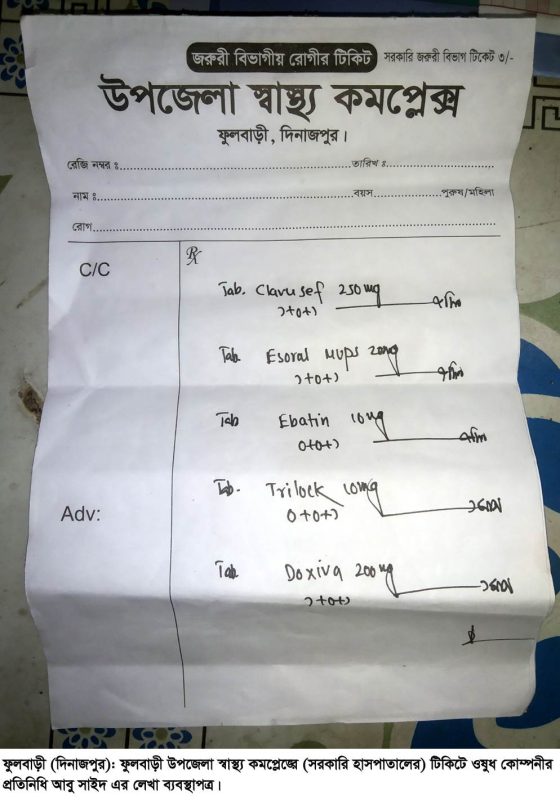 জরুরী বিভাগীয় রোগীর টিকিট সরকারি জরুরী বিভাগ টিকেট ৩/-
উপজেলা স্বাস্থ্য কমপ্লেক্স
ফুলবাড়ী, দিনাজপুর।
রেজি নম্বর ঃ তারিখ ঃ
নাম ঃ বয়স পুরুষ/মহিলা
রোগ
C/C
Rx
Tab. Clavusef 250 mg
১+০+১
Tab. Esoral mups 20mg
১+০+১
Tab Ebatin 10mg
০+০+১
Tab. Trilock 10mg
০+০+১
Adv:
Tab. Doxiva 200mg
১+০+১
ফুলবাড়ী (দিনাজপুর): ফুলবাড়ী উপজেলা স্বাস্থ্য কমপ্লেক্সে (সরকারি হাসপাতালের) টিকিটে ওষুধ কোম্পনীর
প্রতিনিধি আবু সাইদ এর লেখা ব্যবস্থাপত্র।